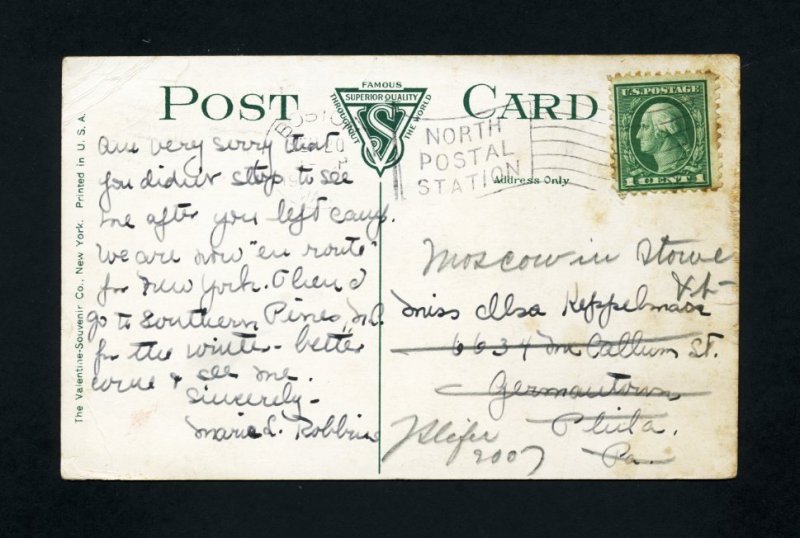 POST CARD
FAMOUS
SUPERIOR QUALITY
THROUGHOUT THE WORLD
VS
U.S. POSTAGE
1 CENT 1
NORTH
POSTAL
STATION
Address Only
The Valentine-Souvenir Co., New York. Printed in U. S. A.
am very sorry that
you didn't stop to see
me after you left camp.
We are now "en route"
for New York. Then I
go to Southern Pines, N.C.
for the winter - better
come & see me.
Sincerely -
Marie L. Robbins
Moscow in Stowe
Vt
Miss Elsa Keppelman
6634 McCallum St.
Germantown
Phila.
Pa.
2007